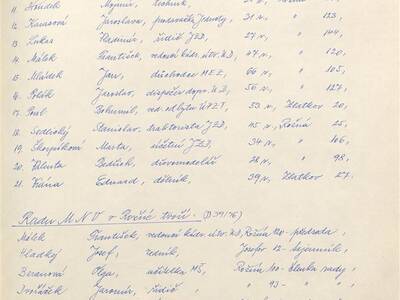 11. Hrůdek Mojmír, technik, 31 r., " 123,
12. Kansová Jaroslava, prodavačka Jednoty, 31 r., " 123,
13. Lukas Vladimír, řidič JZD, 27 r., " 144,
14. Málek František, vedoucí kádr. útv. UD, 47 r., " 120,
15. Mládek Jan, důchodce MEZ, 66 r., " 105,
16. Polák Jaroslav, dispečer dopr. UD, 56 r., " 127,
17. Poul Bohumil, ved. odbytu ÚPZT, 53 r., Zlatkov 20,
18. Sedlecký Stanislav, traktorista JZD, 45 r., Rožná 25,
19. Skorpíková Marta, účetní JZD, 34 r., " 106,
20. Valenta Bedřich, důlní modelář 28 r., " 98,
21. Vrána Eduard, dělník, 39 r., Zlatkov 27.
Radu MNV v Rožné tvoří: (D 39/76)
Málek František, vedoucí kádr. útv. UD, Rožná 120 - předseda,
Hladký Josef, řezník, Josefov 12 - tajemník,
Beranová Olga, učitelka MŠ, Rožná 100 - členka rady,
Dvořáček Jaromír, řidič, " 93 - " ,